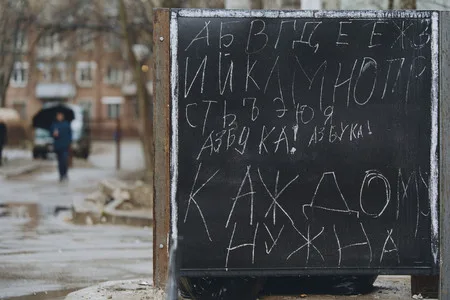 АБВГДЕЕЖЗ
ИЙКЛМНОПР
СТЬЪЭЮЯ
АЗБУКА! АЗБУКА!
КАЖДОМУ
НУЖНА